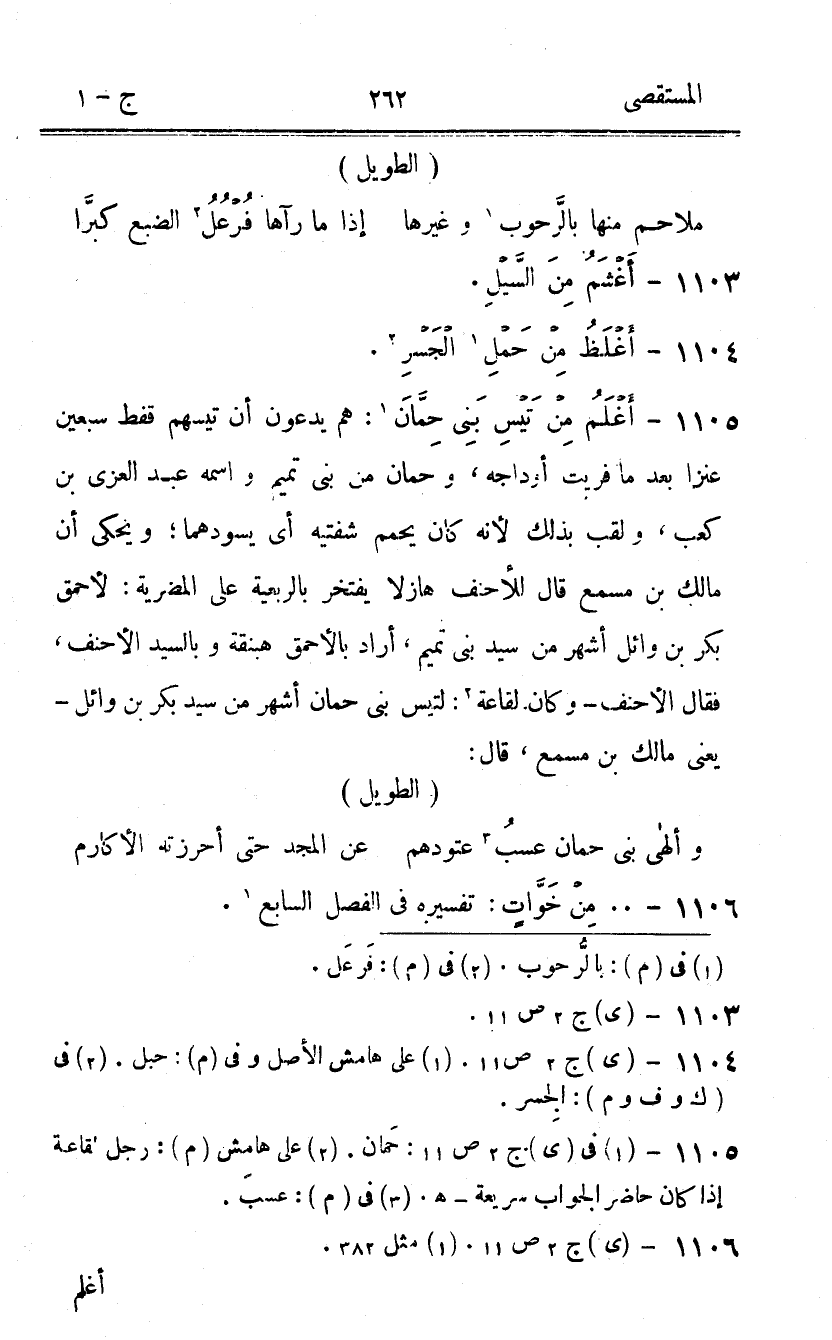 المستقصى ٢٦٢ ج - ١
( الطويل )
ملاحم منها بالرَّحوب١ و غيرها إذا ما رآها فُرْعُلُ٢ الضبع كبَّرا
١١٠٣ - أَغْشَمُ مِنَ السَّيْلِ .
١١٠٤ - أَغْلَظُ مِنْ حَمْلِ١ الْجَسْرِ٢ .
١١٠٥ - أَغْلَمُ مِنْ تَيْسِ بَنِى حِمَّانَ١ : هم يدعون أن تيسهم قفط سبعين
عنزا بعد ما فريت أوداجه، و حمان من بنى تميم و اسمه عبد العزى بن
كعب، و لقب بذلك لأنه كان يحمم شفتيه أى يسودهما؛ و يحكى أن
مالك بن مسمع قال للأحنف هازلا يفتخر بالربعية على المضرية : لأحمق
بكر بن وائل أشهر من سيد بنى تميم، أراد بالأحمق هبنقة و بالسيد الأحنف،
فقال الأحنف - و كان لقاعة٢ : لتيس بنى حمان أشهر من سيد بكر بن وائل -
يعنى مالك بن مسمع، قال :
( الطويل )
و ألهٰى بنى حمان عسبُ٣ عتودهم عن المجد حتى أحرزته الأكارم
١١٠٦ - ٠٠ مِنْ خَوَّاتٍ : تفسيره فى الفصل السابع١ .
(١) فى (م) : بالرُّحوب . (٢) فى (م) : فَرعَل .
١١٠٣ - (ى) ج ٢ ص ١١ .
١١٠٤ - (ى) ج ٢ ص ١١ . (١) على هامش الأصل و فى (م) : حبل . (٢) فى
( ك و ف و م ) : الجِسر .
١١٠٥ - (١) فى (ى) ج ٢ ص ١١ : حَمان . (٢) على هامش (م) : رجل لقاعة
إذا كان حاضر الجواب سريعة - ه . (٣) فى (م) : عسبَ .
١١٠٦ - (ى) ج ٢ ص ١١ . (١) مثل ٣٨٢ .
أغلم